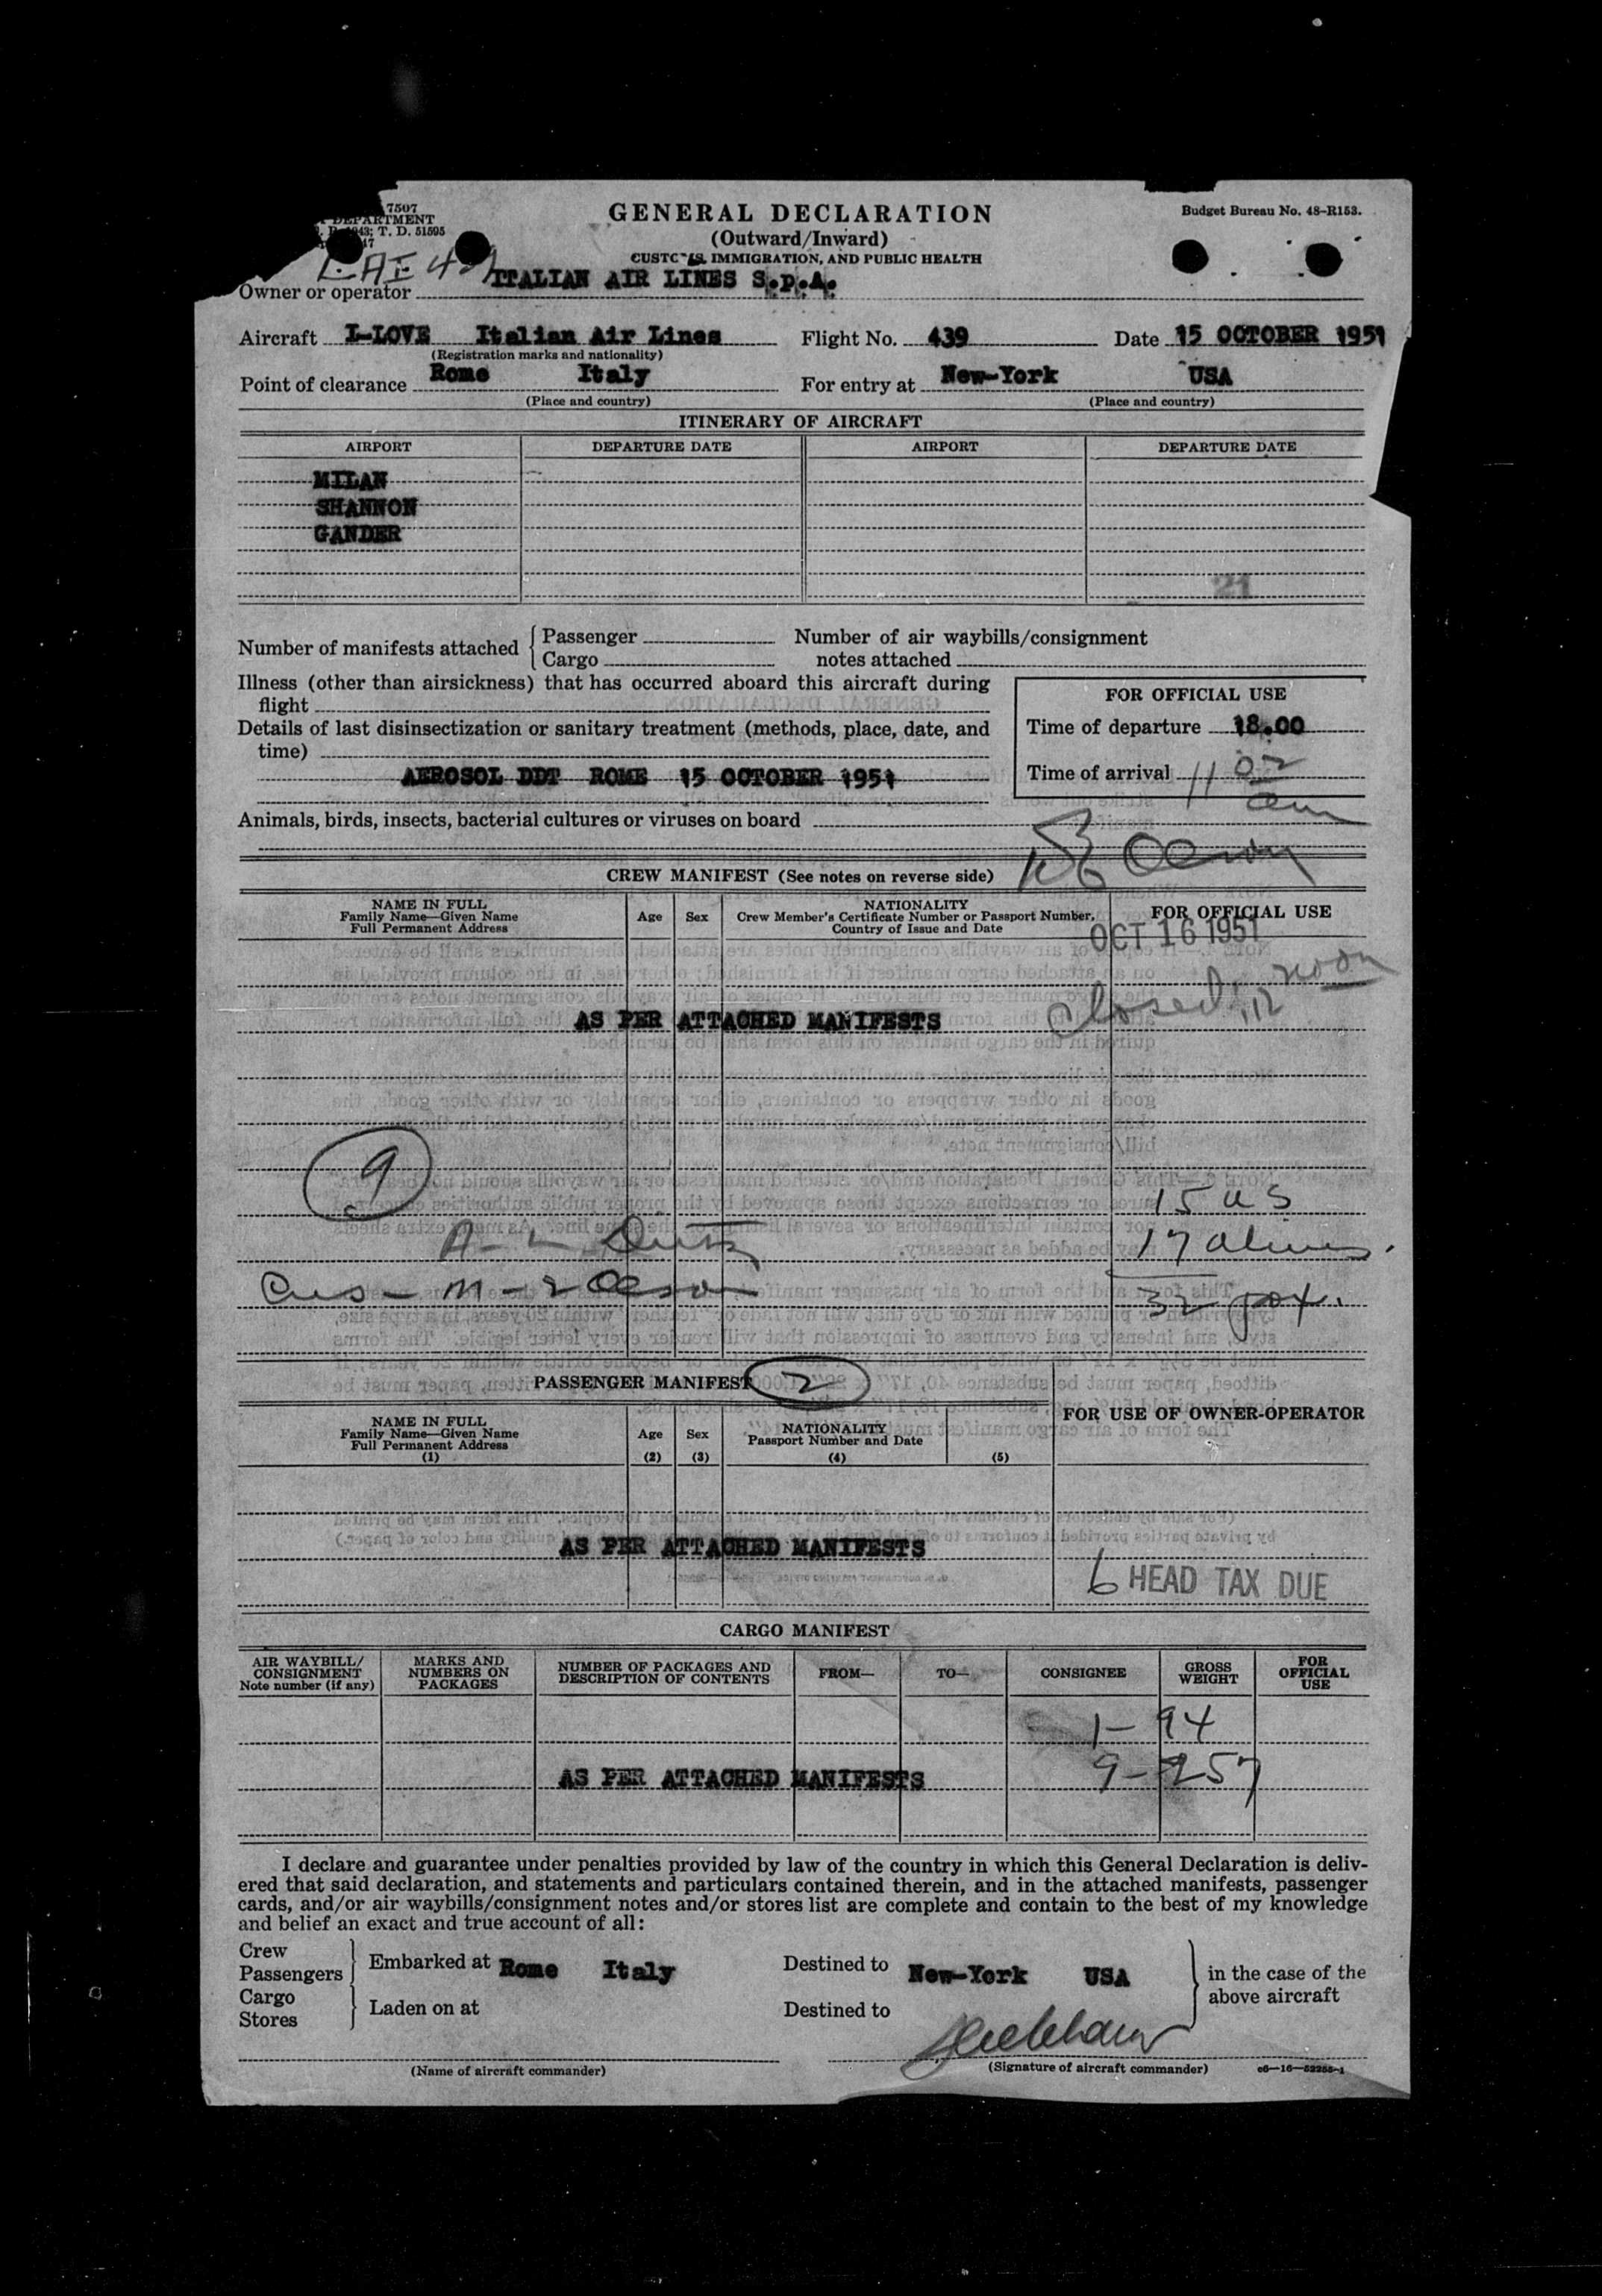 7507
DEPARTMENT
T. D. 51595
GENERAL DECLARATION
(Outward/Inward)
CUSTOMS, IMMIGRATION, AND PUBLIC HEALTH
Budget Bureau No. 48-R153.
Owner or operator ITALIAN AIR LINES S.p.A.
Aircraft I-LOVE Italian Air Lines Flight No. 439 Date 15 OCTOBER 1951
(Registration marks and nationality)
Point of clearance Rome Italy For entry at New-York USA
(Place and country) (Place and country)
ITINERARY OF AIRCRAFT
AIRPORT DEPARTURE DATE AIRPORT DEPARTURE DATE
MILAN
SHANNON
GANDER
21
Number of manifests attached { Passenger Number of air waybills/consignment
Cargo notes attached
Illness (other than airsickness) that has occurred aboard this aircraft during
flight
FOR OFFICIAL USE
Details of last disinsectization or sanitary treatment (methods, place, date, and
time)
Time of departure 18.00
AEROSOL DDT ROME 15 OCTOBER 1951
Time of arrival 11 02 am
Animals, birds, insects, bacterial cultures or viruses on board
CREW MANIFEST (See notes on reverse side)
NAME IN FULL
Family Name—Given Name
Full Permanent Address
Age Sex
NATIONALITY
Crew Member's Certificate Number or Passport Number,
Country of Issue and Date
FOR OFFICIAL USE
OCT 16 1951
closed: 12 noon
AS PER ATTACHED MANIFESTS
9
15 US
17 aliens.
32 pax.
PASSENGER MANIFEST 2
NAME IN FULL
Family Name—Given Name
Full Permanent Address
(1)
Age
(2)
Sex
(3)
NATIONALITY
Passport Number and Date
(4) (5)
FOR USE OF OWNER-OPERATOR
AS PER ATTACHED MANIFESTS
6 HEAD TAX DUE
CARGO MANIFEST
AIR WAYBILL/
CONSIGNMENT
Note number (if any)
MARKS AND
NUMBERS ON
PACKAGES
NUMBER OF PACKAGES AND
DESCRIPTION OF CONTENTS
FROM— TO— CONSIGNEE
GROSS
WEIGHT
FOR
OFFICIAL
USE
1- 94
AS PER ATTACHED MANIFESTS 9-257
I declare and guarantee under penalties provided by law of the country in which this General Declaration is deliv-
ered that said declaration, and statements and particulars contained therein, and in the attached manifests, passenger
cards, and/or air waybills/consignment notes and/or stores list are complete and contain to the best of my knowledge
and belief an exact and true account of all:
Crew
Passengers } Embarked at Rome Italy Destined to New-York USA } in the case of the
above aircraft
Cargo
Stores } Laden on at Destined to
(Name of aircraft commander) (Signature of aircraft commander)